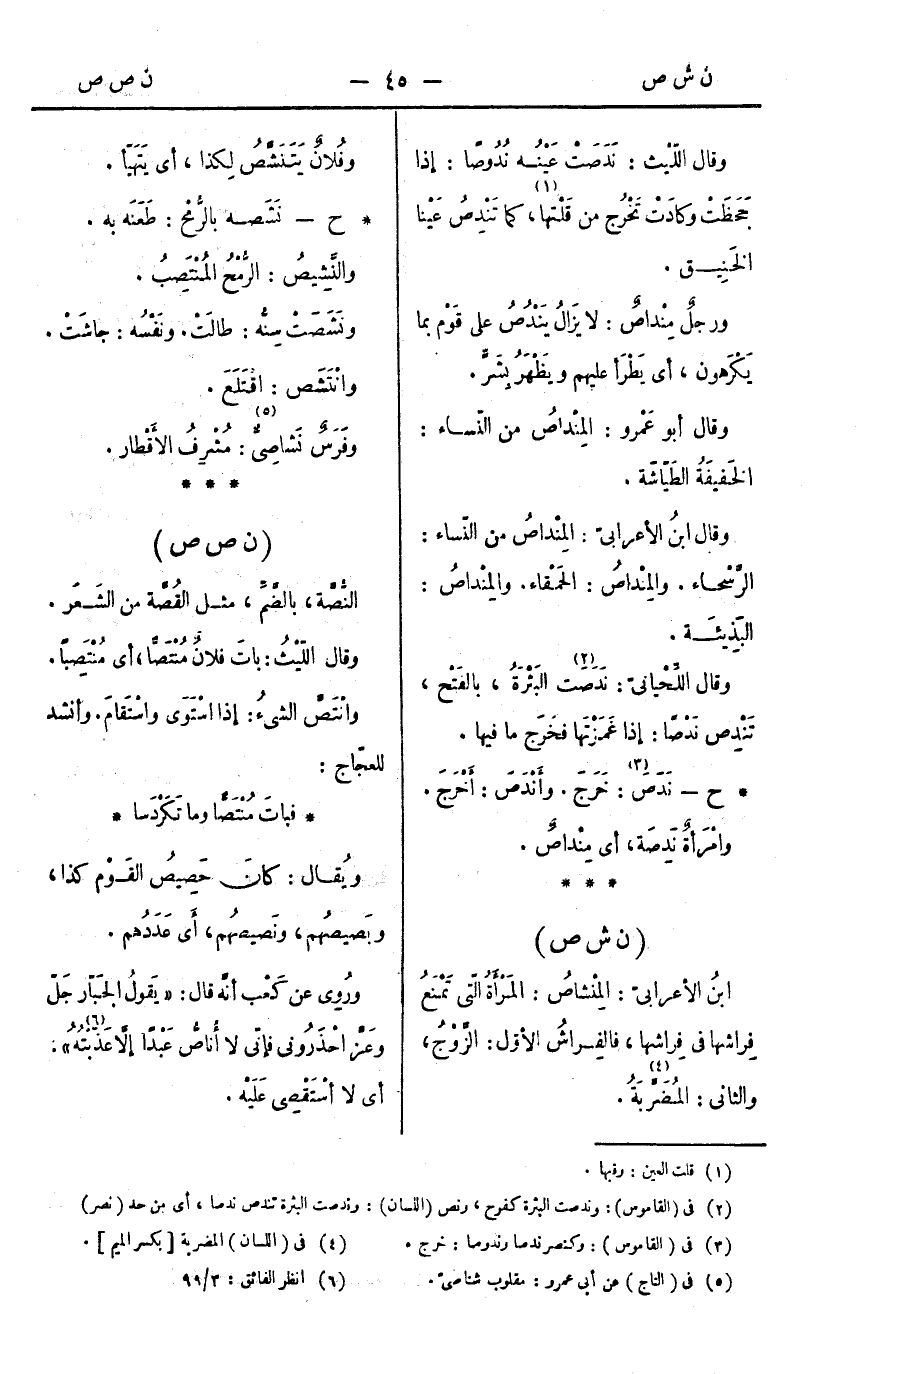 ن ش ص — ٤٥ — ن ص ص
وقال اللَّيْث : نَدَصَتْ عَيْنُـه نُدُوصًا : إذا
جَحَظَتْ وكادَتْ تَخْرُج من قَلْتِها(١)، كما تَنْدِصُ عَيْنا
الخَنِيـق .
ورجلٌ مِنْداصٌ : لا يزَالُ يَنْدُصُ على قَوْم بما
يَكْرَهون ، أى يَطْرَأ عليهم ويَظْهَرُ بِشَرٍّ .
وقال أبو عَمْرو : المِنْداصُ من النّسـاء :
الخَفيفَةُ الطَيّاشَة .
وقال ابنُ الأعرابىّ : المِنْداصُ من النّساء :
الرَّسْحـاء . والمِنْداصُ : الحَمْقاء. والمِنْداصُ :
البَذِيئَـة .
وقال اللِّحْيانىّ : نَدَصَت(٢) البَثْرَةُ ، بالفَتْح ،
تَنْدِص نَدْصًا : إذا غَمَزْتَها فخَرَج ما فيها .
* ح — نَدَصَ(٣) : خَرَجَ . وأَنْدَصَ : أَخْرَجَ .
وامْرَأةٌ نَدِصَة، أى مِنْداصٌ .
* * *
( ن ش ص )
ابنُ الأعرابىّ : المِنْشاصُ : المَرْأَةُ الّتى تَمْنَعُ
فِراشها فى فِراشها ، فالفِـراشُ الأوّل : الزَّوْجُ،
والثانى : المُضَرَّبَةُ(٤) .
وفُلانٌ يَتَنَشَّصُ لِكذا ، أى يَتَهَيَّأ .
* ح — نَشَصـه بالرُّمْح : طَعَنَه به .
والنَّشِيصُ : الرُّمْحُ المُنْتَصِبُ .
ونَشَصَتْ سِنُّه : طالَتْ. ونَفْسُه : جاشَتْ .
وانْتَشَص : اقْتَلَعَ .
وفَرَسٌ نَشاصِىٌّ(٥) : مُشْرِفُ الأَقْطار .
* * *
( ن ص ص )
النُصَّة ، بالضَّمّ ، مثـل القُصَّة من الشَـعَر .
وقال اللَّيْثُ : باتَ فلانٌ مُنْتَصًّا، أى مُنْتَصِبًا .
وانْتَصَّ الشىءُ : إذا اسْتَوَى واسْتَقامَ. وأنشد
للعجّاج :
* فباتَ مُنْتَصًّا وما تَكَرْدَسا *
ويُقـال : كانَ حَصِيصُ القَـوْم كذا،
وبَصِيصُهم، ونَصِيصُهم، أَى عَدَدُهم .
ورُوِى عن كَعْب أنّه قال : «يَقولُ الجَبّار جَلّ
وعَزَّ احْذَرُونى فإنّى لا أُناصُّ عَبْدًا إلّا عَذَّبْتُه(٦)» :
أى لا أَسْتَقْصِى عَلَيْه .
(١) قلت العين : رقبها .
(٢) فى ( القاموس) : وندصت البثرة كفرح ، ونص (اللسان) : وندصت البثرة تندص ندصا ، أى من حد (نصر)
(٣) فى ( القاموس ) : وكنصر ندصا وندوصا : خرج .
(٤) فى ( اللسان ) المضربة [ بكسر الميم ] .
(٥) فى ( التاج ) عن أبى عمرو : مقلوب شناصىّ .
(٦) انظر الفائق : ٣/ ٩٩